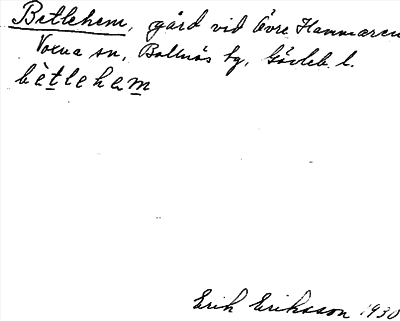 Betlehem, gård vid Övre Hammaren
Voxna sn, Bollnäs tg, Gävleb l.
bètlehem
Erik Eriksson 1930